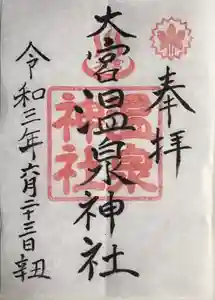 奉拝
大宮温泉神社
温泉
神社
令和三年六月二十三日辛丑